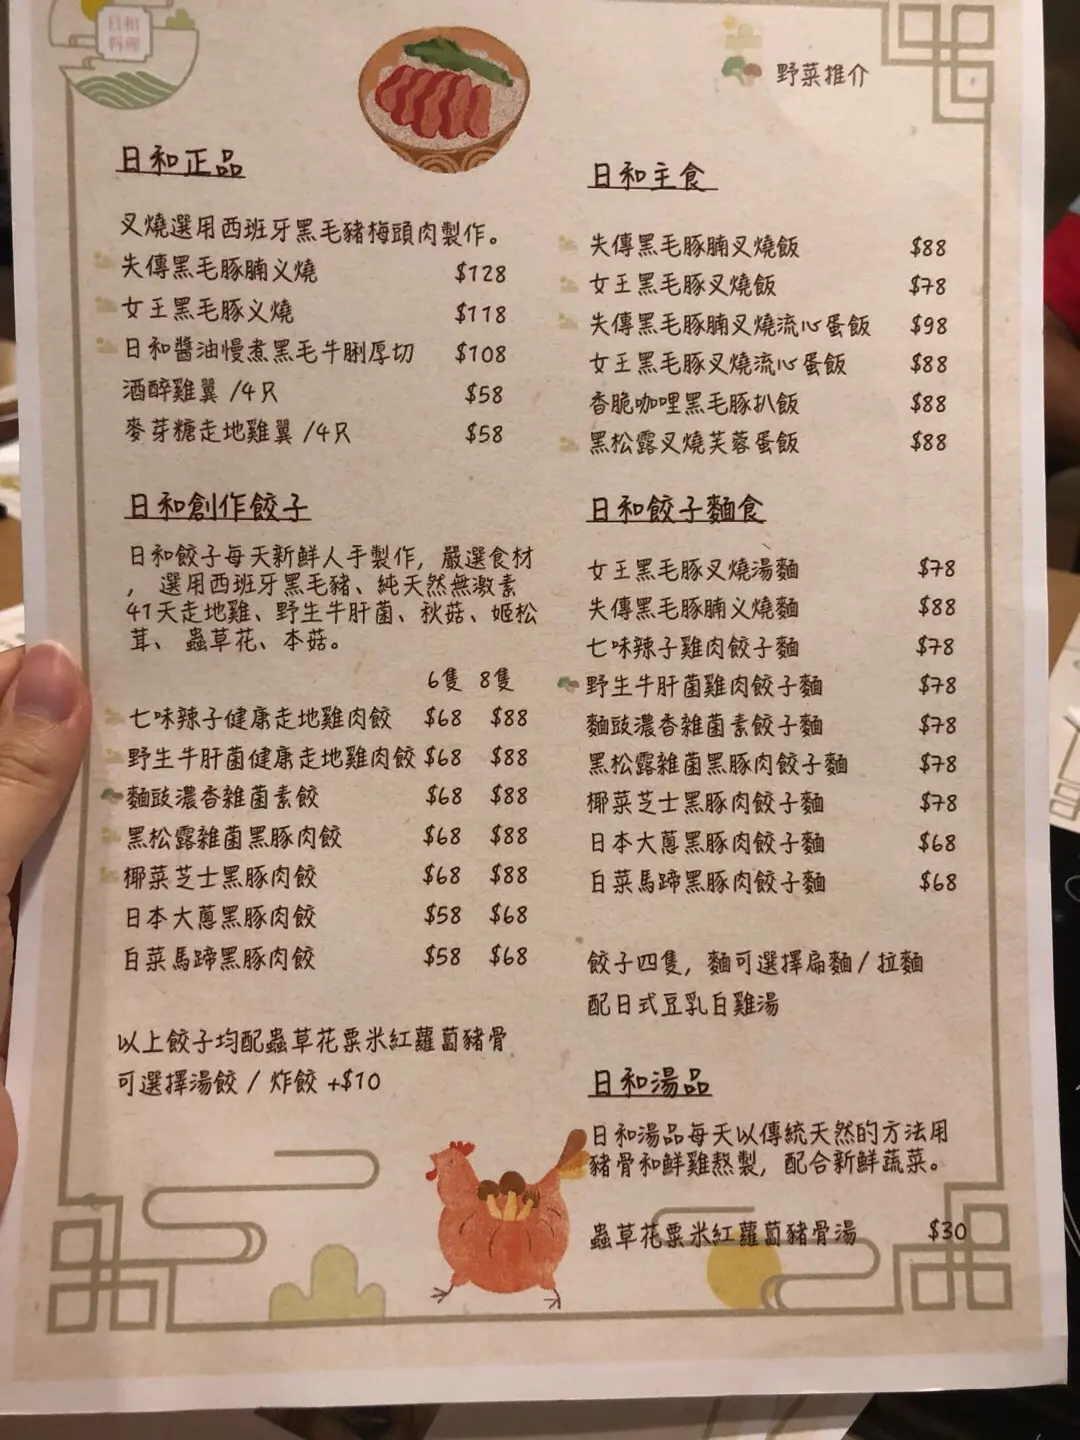 日和
料理
野菜推介
日和正品
叉燒選用西班牙黑毛豬梅頭肉製作。
失傳黑毛豚腩义燒 $128
女王黑毛豚义燒 $118
日和醬油慢煮黑毛牛脷厚切 $108
酒醉雞翼 /4只 $58
麥芽糖走地雞翼 /4只 $58
日和創作餃子
日和餃子每天新鮮人手製作, 嚴選食材
, 選用西班牙黑毛豬、純天然無激素
41天走地雞、野生牛肝菌、秋菇、姬松
茸、 蟲草花、本菇。
6隻 8隻
七味辣子健康走地雞肉餃 $68 $88
野生牛肝菌健康走地雞肉餃 $68 $88
麵豉濃香雜菌素餃 $68 $88
黑松露雜菌黑豚肉餃 $68 $88
椰菜芝士黑豚肉餃 $68 $88
日本大蔥黑豚肉餃 $58 $68
白菜馬蹄黑豚肉餃 $58 $68
以上餃子均配蟲草花粟米紅蘿蔔豬骨
可選擇湯餃 / 炸餃 +$10
日和主食
失傳黑毛豚腩叉燒飯 $88
女王黑毛豚叉燒飯 $78
失傳黑毛豚腩叉燒流心蛋飯 $98
女王黑毛豚叉燒流心蛋飯 $88
香脆咖哩黑毛豚扒飯 $88
黑松露叉燒芙蓉蛋飯 $88
日和餃子麵食
女王黑毛豚叉燒湯麵 $78
失傳黑毛豚腩义燒麵 $88
七味辣子雞肉餃子麵 $78
野生牛肝菌雞肉餃子麵 $78
麵豉濃香雜菌素餃子麵 $78
黑松露雜菌黑豚肉餃子麵 $78
椰菜芝士黑豚肉餃子麵 $78
日本大蔥黑豚肉餃子麵 $68
白菜馬蹄黑豚肉餃子麵 $68
餃子四隻, 麵可選擇扁麵 / 拉麵
配日式豆乳白雞湯
日和湯品
日和湯品每天以傳統天然的方法用
豬骨和鮮雞熬製, 配合新鮮蔬菜。
蟲草花粟米紅蘿蔔豬骨湯 $30